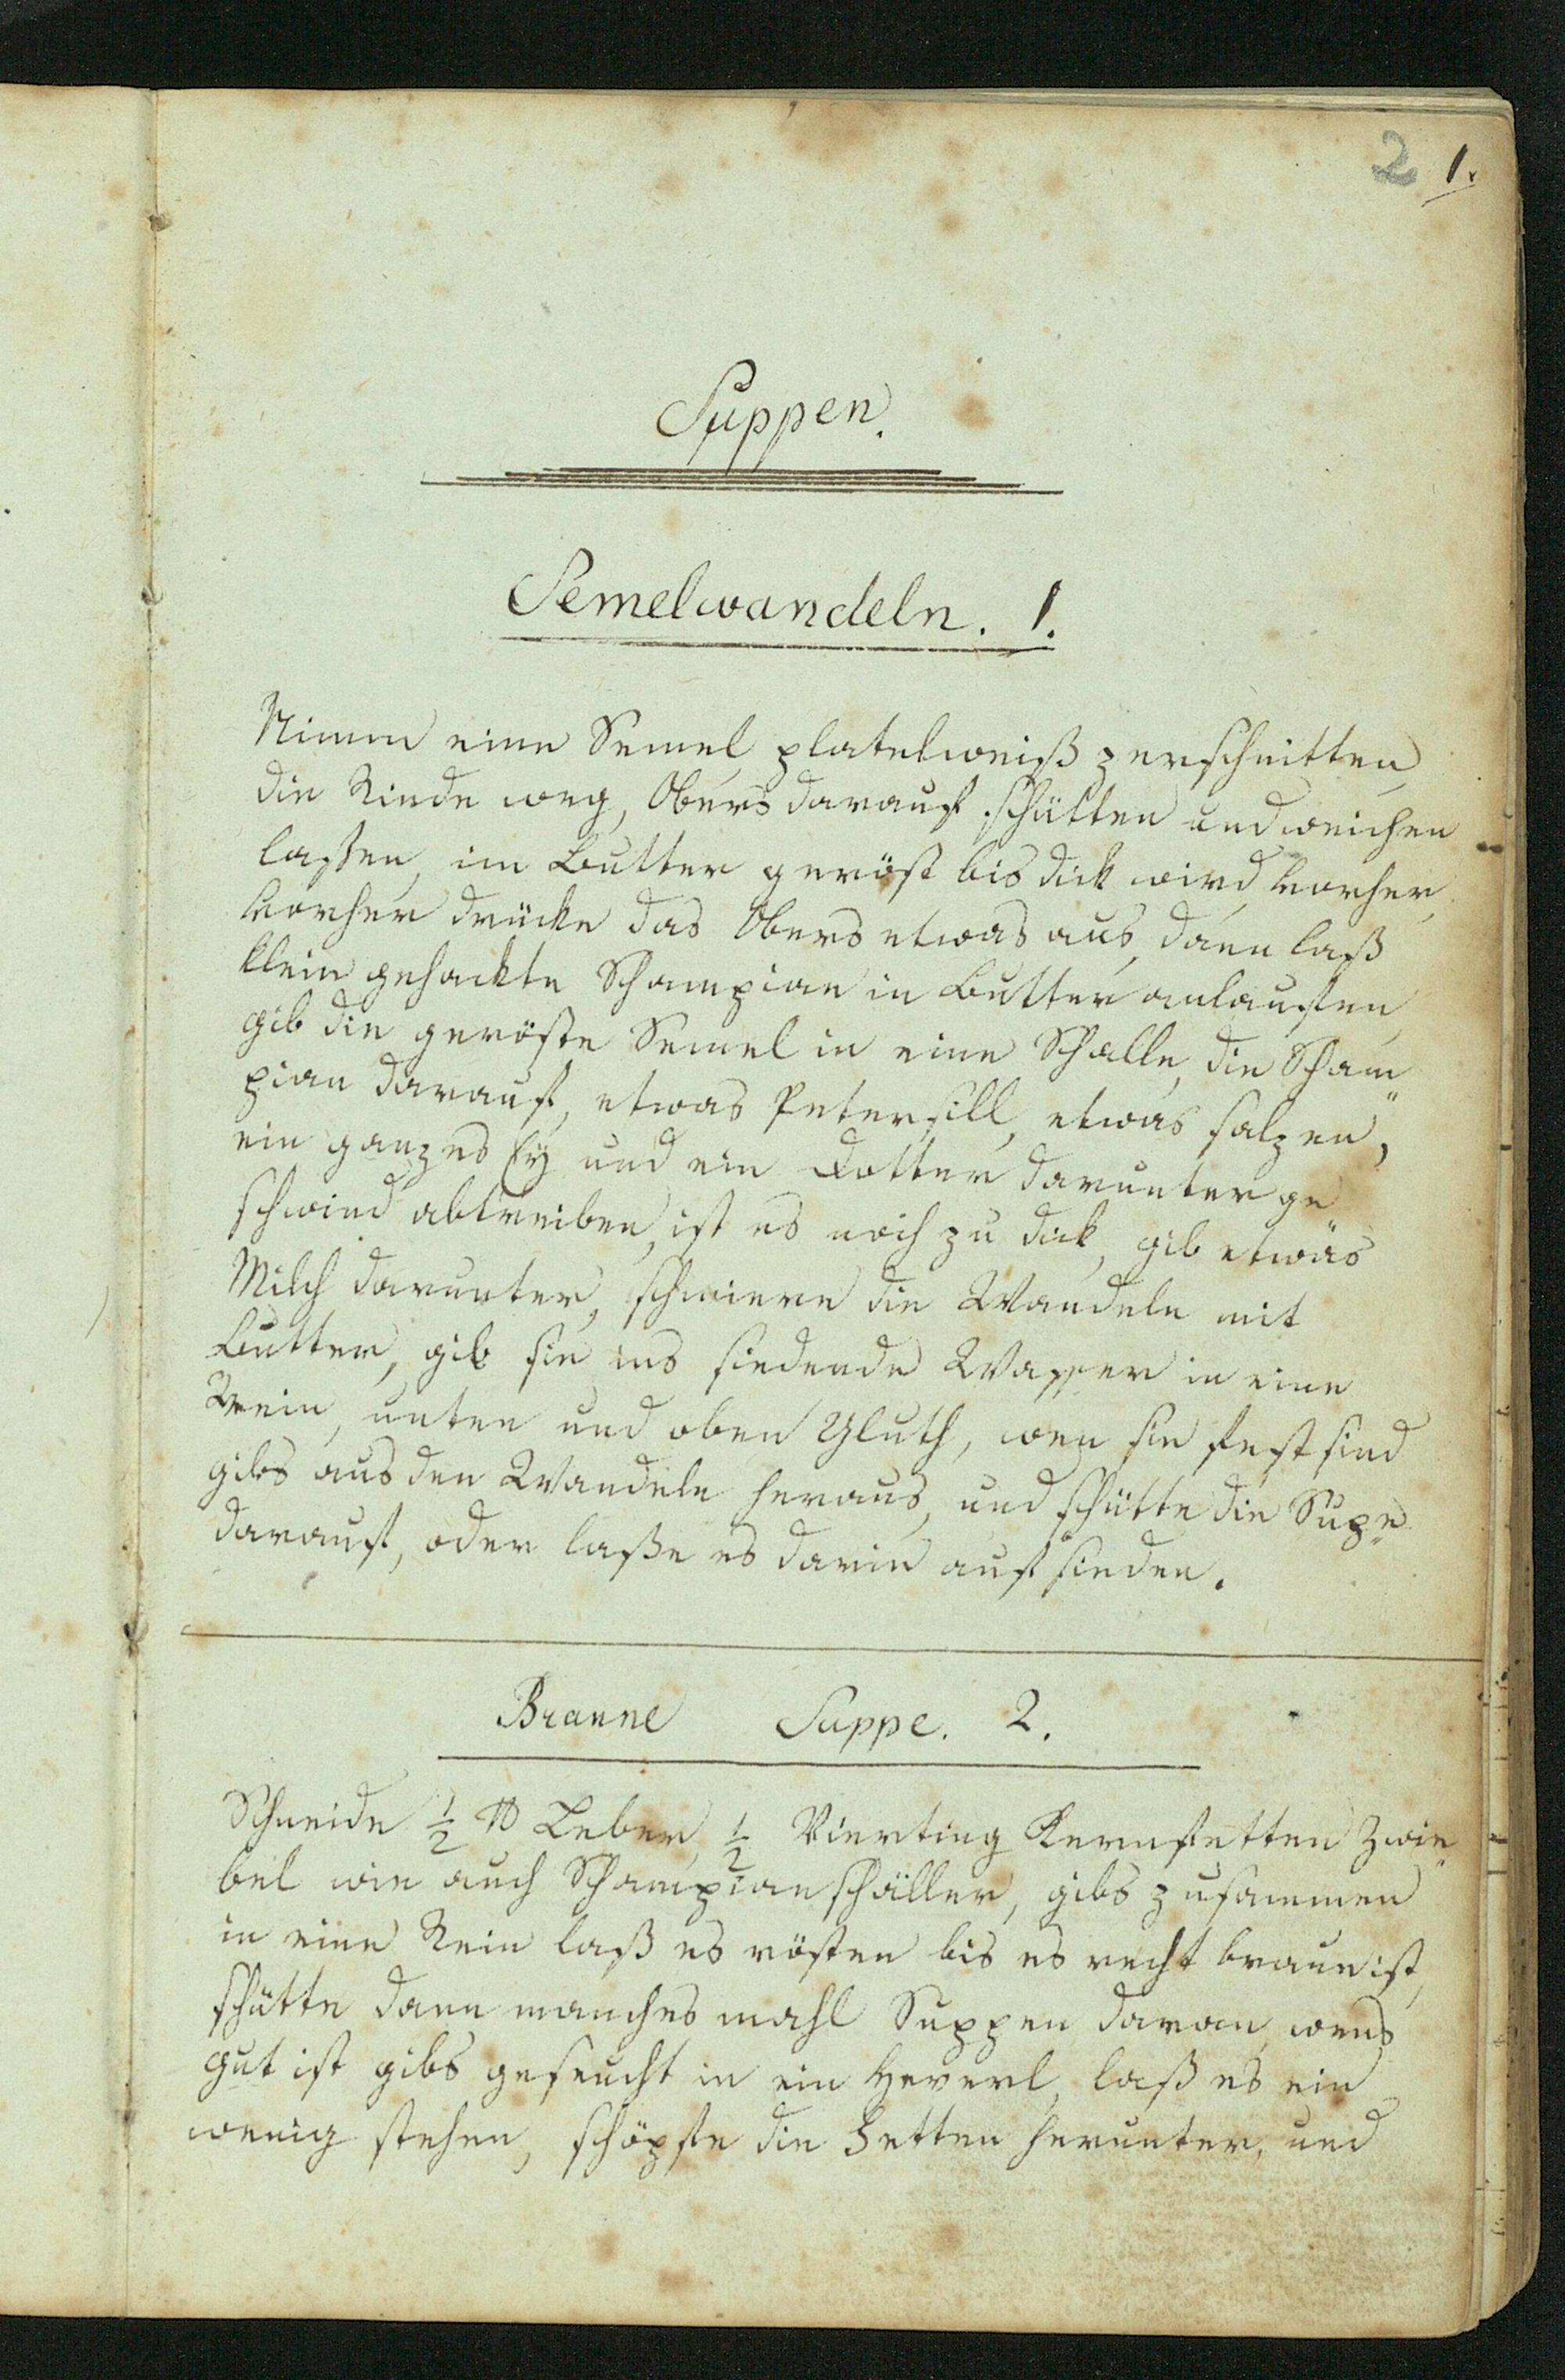 2 1.
Suppen.
Semelwandeln. 1.
Nimm eine Semel platelweiß zerschnitten
die Rinde weg, Obers darauf schütten und weichen
laßen, im Butter geröst bis dick wird, vorher
vorher drücke das Obers etwas aus, dann laß
klein gehackte Schampian in Butter anlaufen
gib die geröste Semel in eine Schalle, die Scham„
pian darauf, etwas Petersill, etwas salzen,
ein ganzes Ey und ein Dotter darunter ge
schwind abtreiben, ist es noch zu dick, gib etwas
Milch darunter, schmiere die Wandeln mit
Butter, gib sie ins siedende Wasser in eine
Rein, unten und oben Gluth, wen sie fest sind
gibs aus den Wandeln heraus, und schütte die Supe
darauf, oder laße es darin auf sieden.
Braune Suppe. 2.
Schneide ½ ℔ Leber, ½ Vierting Kernfetten Zwie„
bel wie auch Schampian schäller, gibs zusammen
in eine Rein laß es rösten bis es recht braun ist,
schütte dann manches mahl Suppen daran, wens
gut ist gibs geseucht in ein Heverl, laß es ein
wenig stehen, schöpfe die Fetten herunter, und